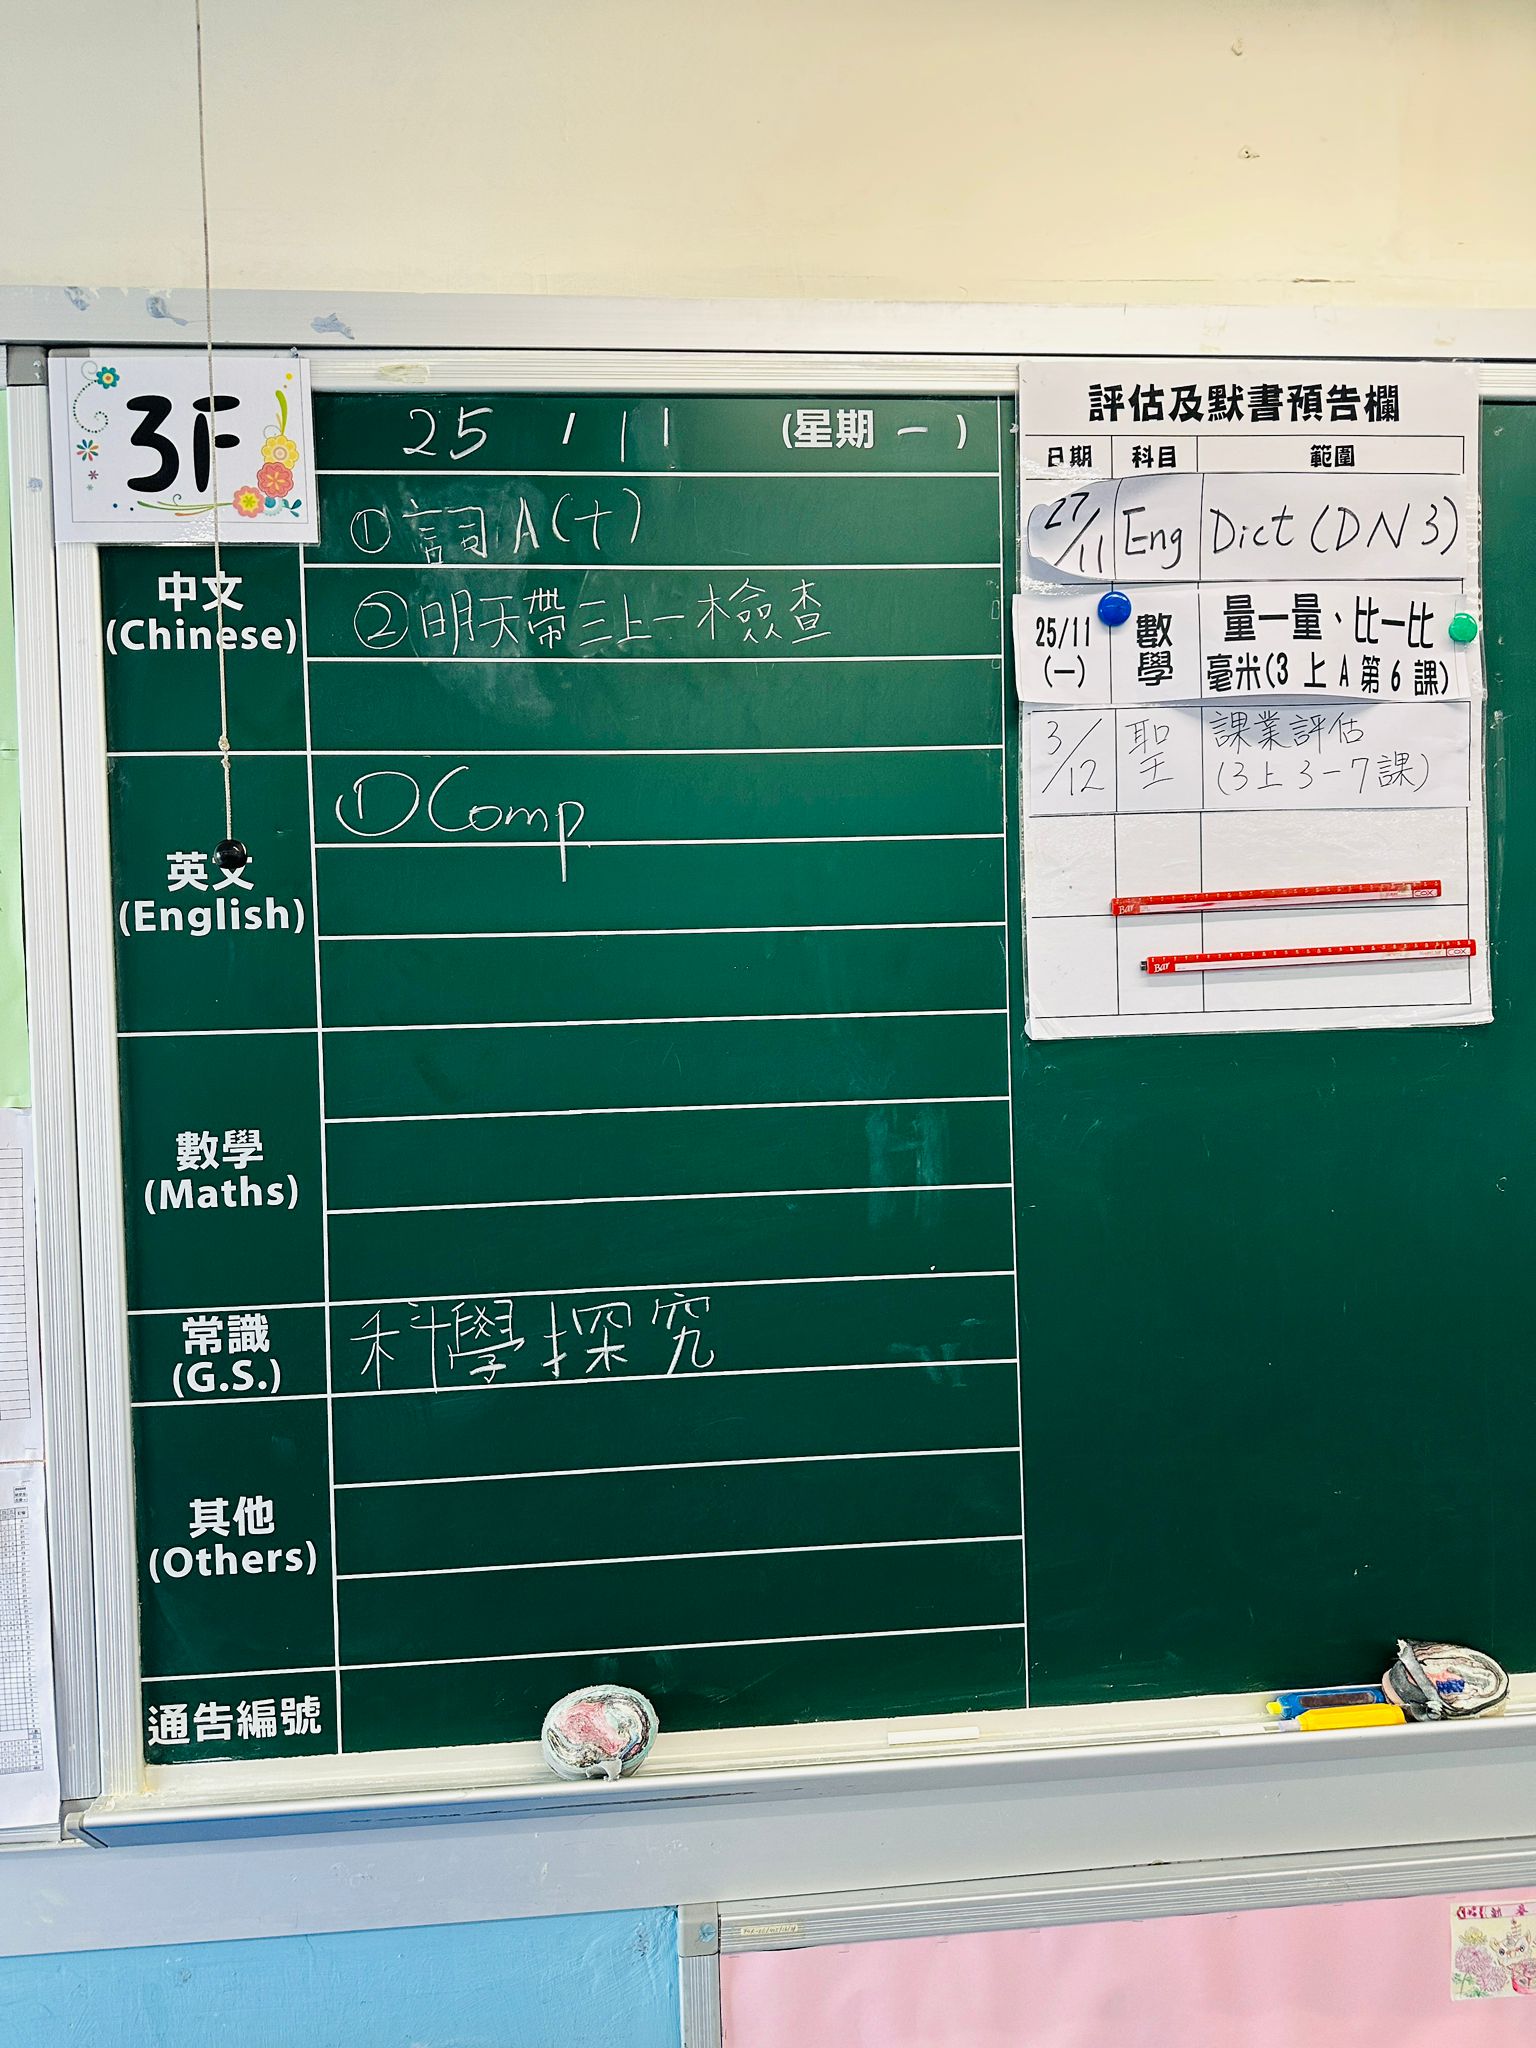 3F
25 / 11 (星期一)
中文
(Chinese)
① 詞A(十)
② 明天帶三上一檢查
英文
(English)
① Comp
數學
(Maths)
常識
(G.S.)
科學探究
其他
(Others)
通告編號
評估及默書預告欄
日期 科目 範圍
27/11 Eng Dict (DN3)
25/11
(一)
數學
量一量、比一比
毫米(3 上 A 第 6 課)
3/12 聖 課業評估
(3上 3-7課)
Bar COX
Bar COX